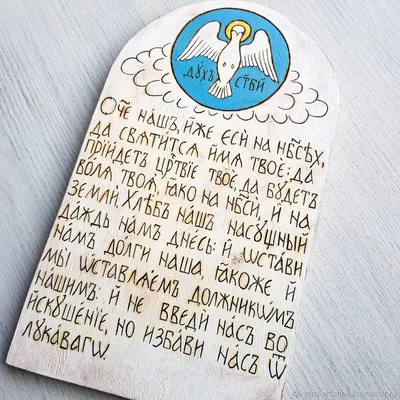 дꙋ́хъ ст҃ы́й
Ѻ҆́ч҃е на́шъ, и҆́же є҆сѝ на нб҃сѣ́хъ,
да свѧти́тсѧ и҆́мѧ твоѐ: да
прїи́детъ црⷭ҇твїе твоѐ, да бꙋ́детъ
во́лѧ твоѧ̀, ꙗ҆́кѡ на нб҃сѝ, и҆ на
землѝ, Хлѣ́бъ на́шъ насꙋ́щный
да́ждь на́мъ дне́сь: и҆ ѡ҆ста́ви
на́мъ до́лги на́ша, ꙗ҆́коже, и҆
мы̀ ѡ҆ставлѧ́емъ должникѡ́мъ
на́шимъ: и҆ не введѝ на́съ во
и҆скꙋше́нїе, но и҆зба́ви на́съ ѿ
лꙋка́вагѡ.